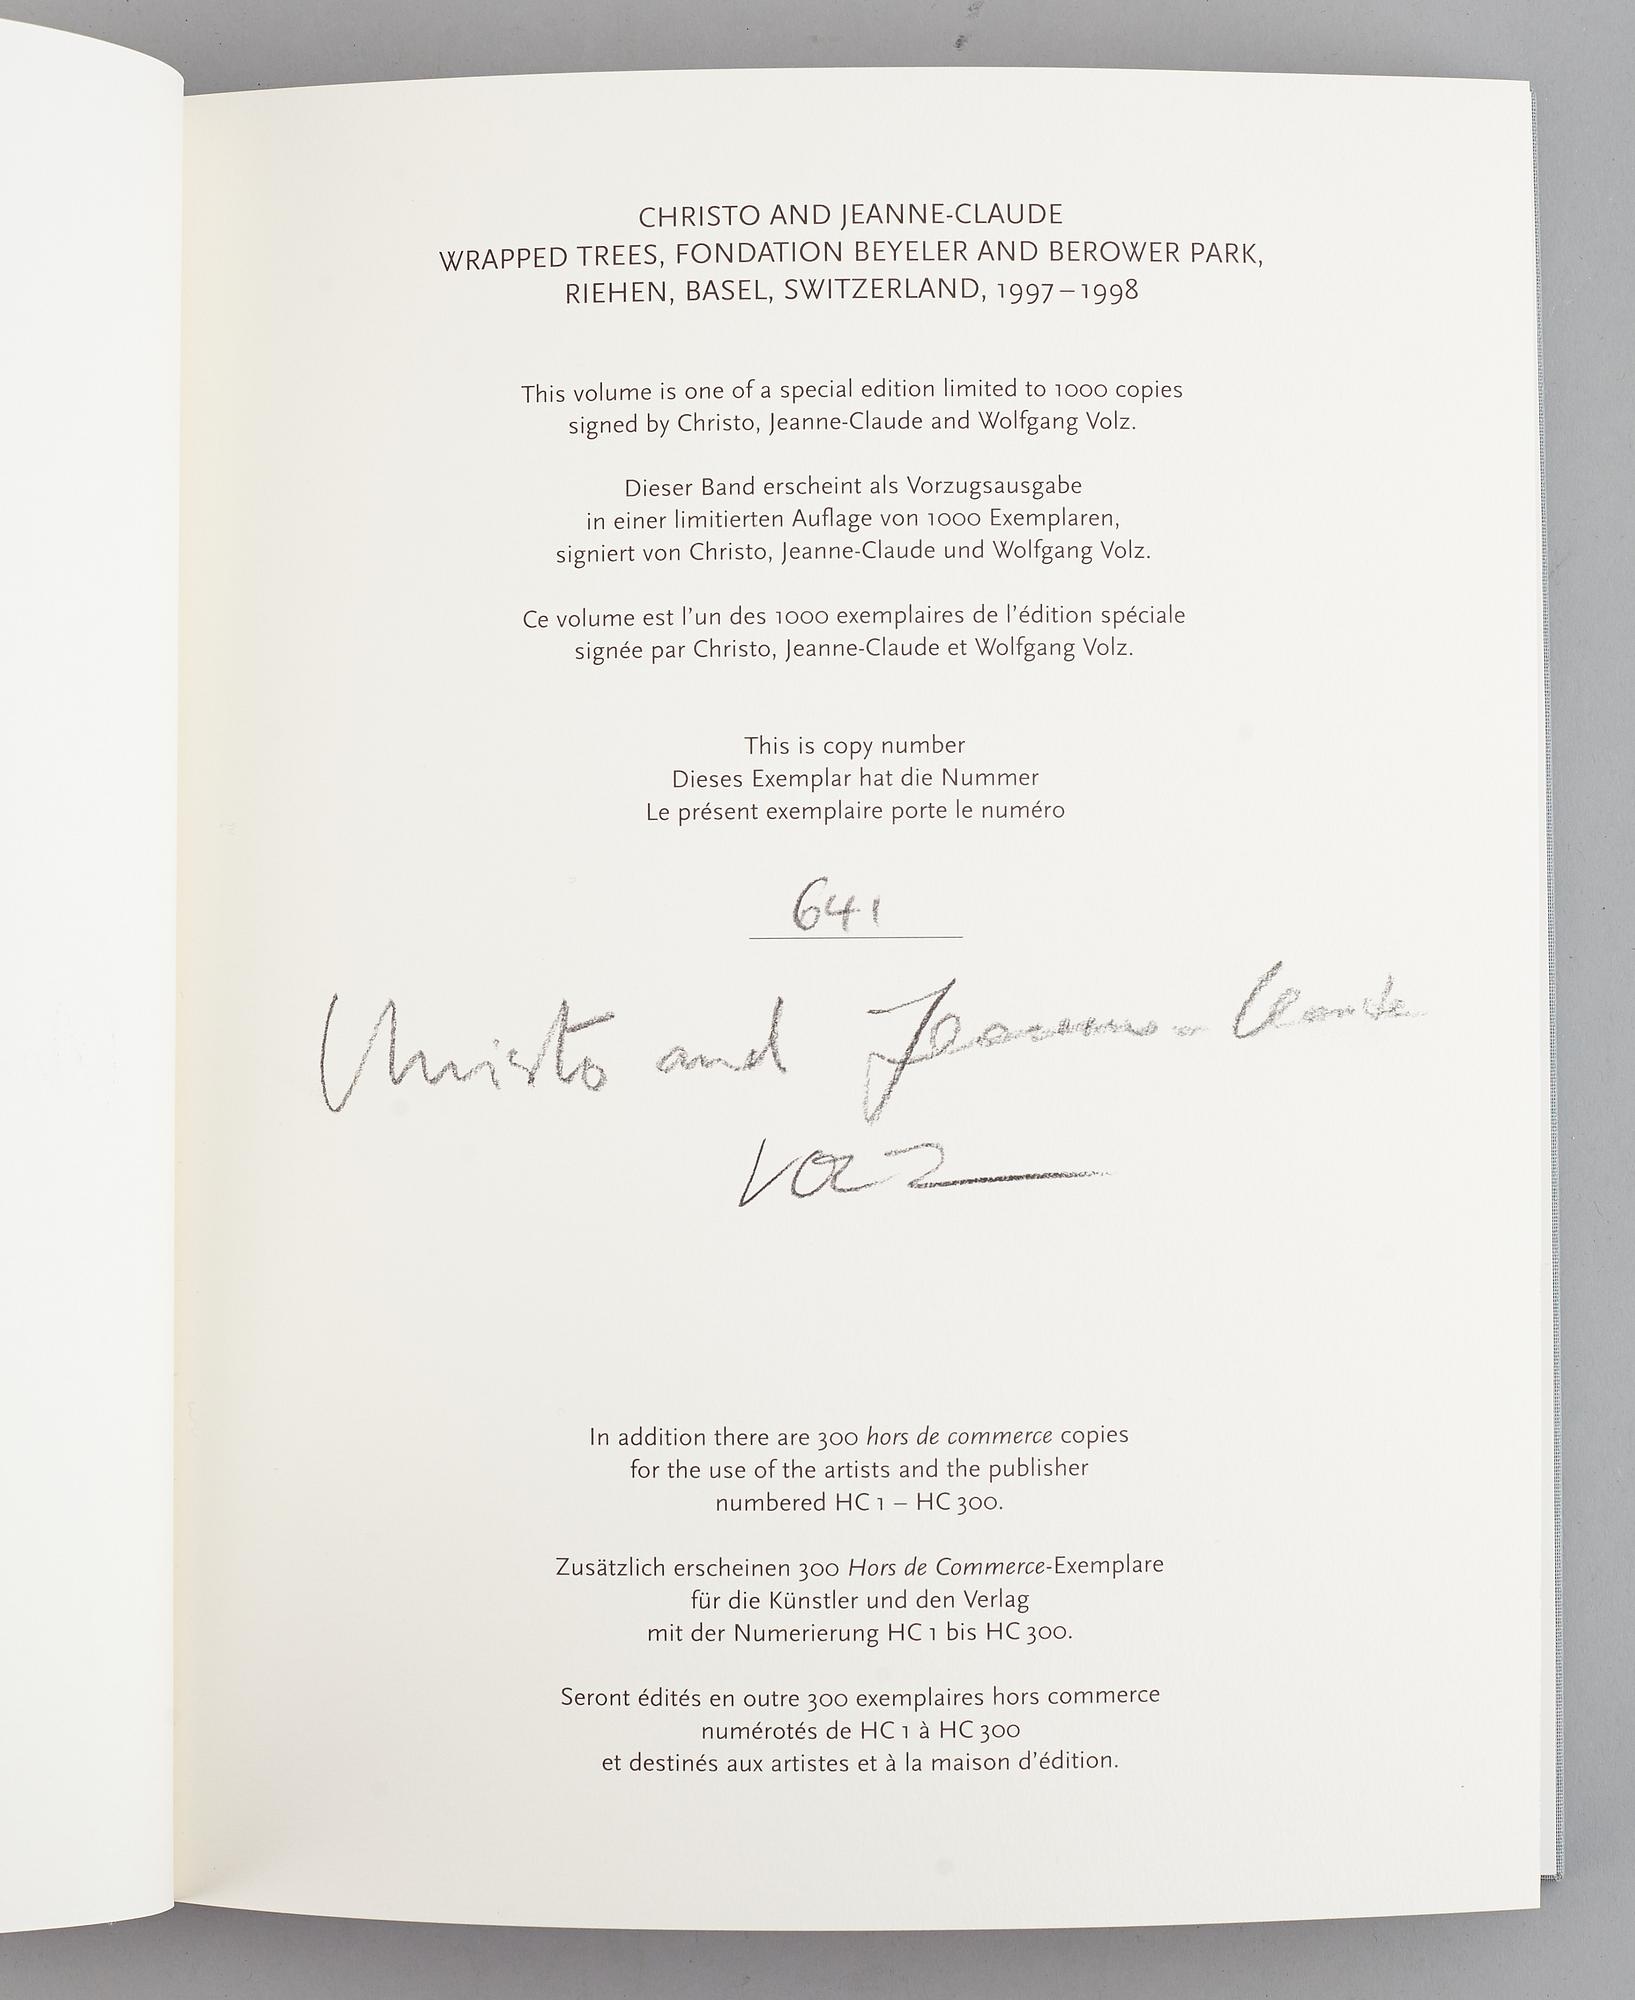 CHRISTO AND JEANNE-CLAUDE
WRAPPED TREES, FONDATION BEYELER AND BEROWER PARK,
RIEHEN, BASEL, SWITZERLAND, 1997–1998
This volume is one of a special edition limited to 1000 copies
signed by Christo, Jeanne-Claude and Wolfgang Volz.
Dieser Band erscheint als Vorzugsausgabe
in einer limitierten Auflage von 1000 Exemplaren,
signiert von Christo, Jeanne-Claude und Wolfgang Volz.
Ce volume est l'un des 1000 exemplaires de l'édition spéciale
signée par Christo, Jeanne-Claude et Wolfgang Volz.
This is copy number
Dieses Exemplar hat die Nummer
Le présent exemplaire porte le numéro
641
Christo and Jeanne-Claude
Volz
In addition there are 300 hors de commerce copies
for the use of the artists and the publisher
numbered HC 1 – HC 300.
Zusätzlich erscheinen 300 Hors de Commerce-Exemplare
für die Künstler und den Verlag
mit der Numerierung HC 1 bis HC 300.
Seront édités en outre 300 exemplaires hors commerce
numérotés de HC 1 à HC 300
et destinés aux artistes et à la maison d'édition.